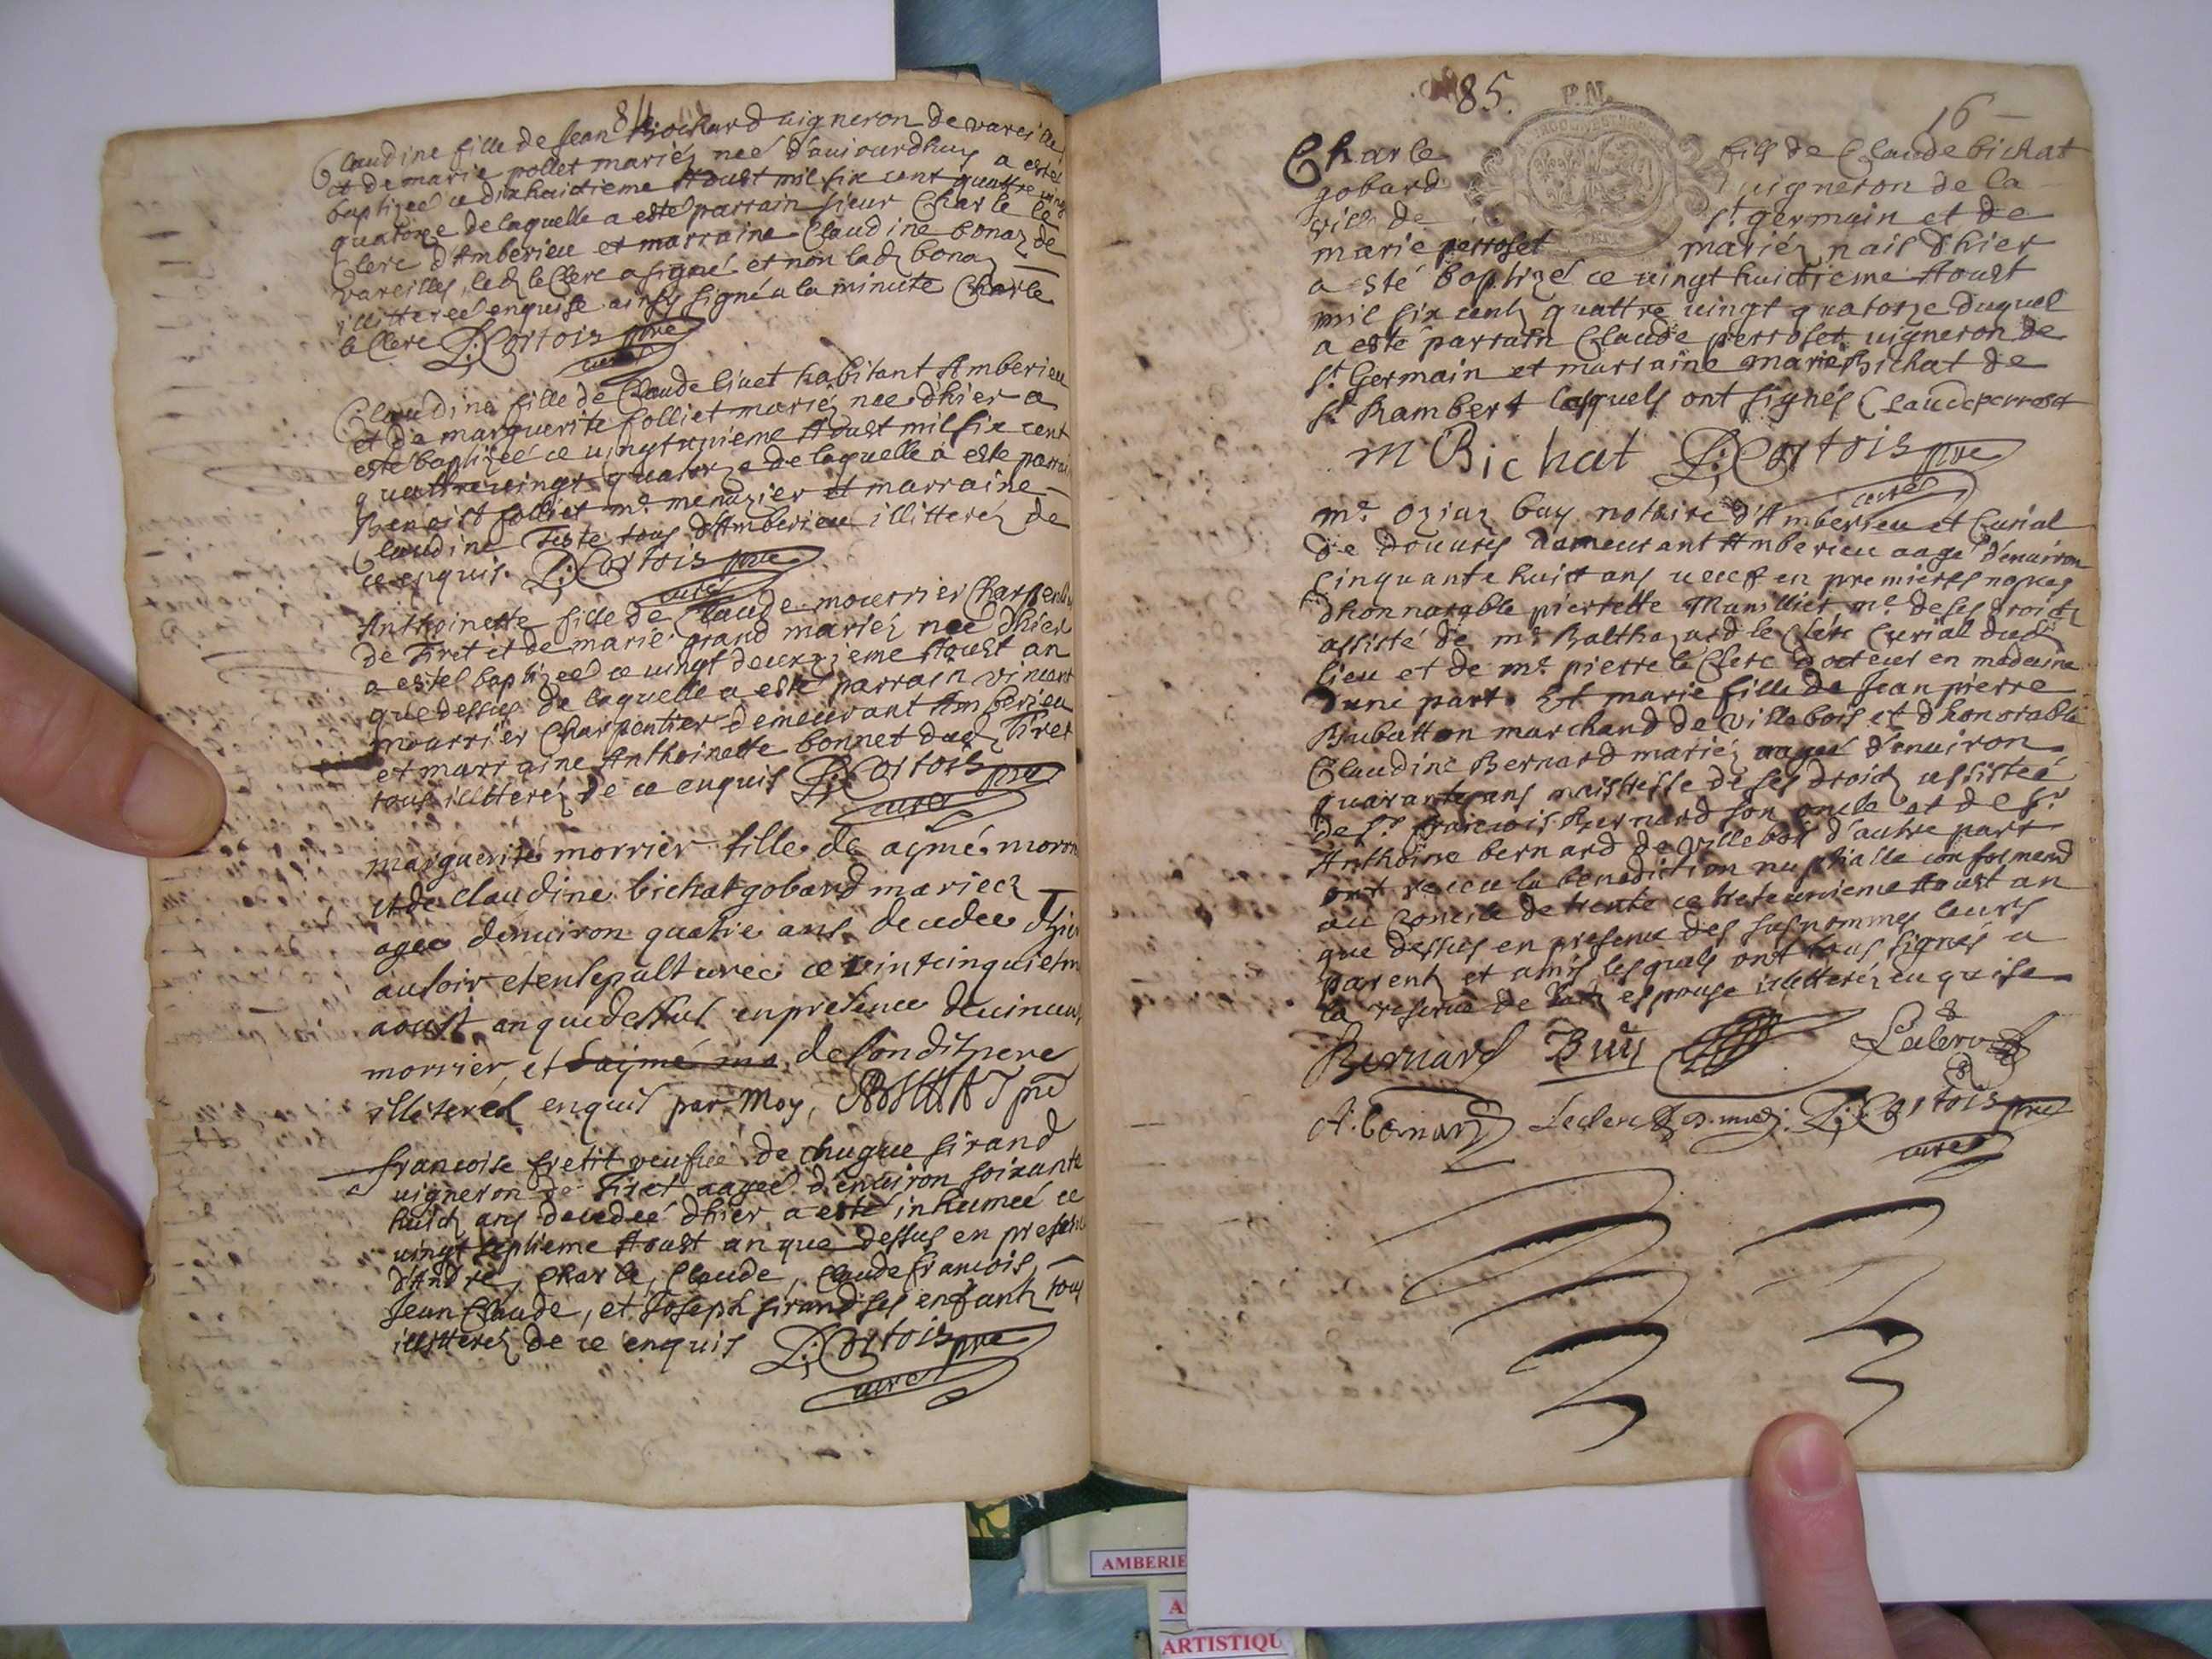 84
Claudine fille de Jean Brochard vigneron de vareille
et de marie pollet mariez neé d'auiourdhuy a esteé
baptizeé ce dixhuictieme Aoust mil six cent quattre vingt
quatorze de laquelle a esté parrain sieur Charle le
Clerc d'Amberieu et marraine Claudine bonaz de
vareilles, led le Clerc a signé et non lad bonaz
illittereé enquise ainsy signé a la minute Charle
leClerc D: Cortois pre
curé
Claudine fille de Claude liuet habitant Amberieu
et de marguerite folliet mariez neé d'hier a
esté baptizeé ce vingtunieme Aoust mil six cent
quattrevingt quatorze de laquelle a esté parrai
Benoist folliet me menuzier et marraine
Claudine Teste tous d'Amberieu illitterez de
ce enquis. D: Cortois pre
curé
Anthoinette fille de Claude mourrier Charpenti
de Tiret et de marie grand mariez neé d'hier
a esteé baptizeé ce vingt deuxzieme Aoust an
que dessus de laquelle a esté parrain vincent
mourrier Charpentier demeurant Amberieu
et marraine Anthoinette bonnet dud Tiret
tous illitterez de ce enquis D: Cortois pre
curé
marguerite morrier fille de aymé morri
et de Claudine bichat gobard mariez
agee denuiron quatre ans decedee d'hier
au soir et ensepulturee ce vintcinquiem
aoust an que dessus en presence de vincent
morrier, et de son dit pere
illiterez enquis par moy, pre
francoise fretit veufue de hugue sirand
vigneron de Tiret aageé d'enuiron soixante
huict ans decedeé d'hier, a esté inhumeé ce
vingt septieme Aoust an que dessus en presen
d'André, Charle, Claude, Claude francois,
Jean Claude, et Joseph sirand ses enfantz tous
illitterez de ce enquis D: Cortois pre
curé
85. 16
P.N.
Charle fils de Claude bichat
gobard vigneron de la
ville de St germain et de
marie perroset mariez nais d'hier
a esté baptizé ce vingt huictieme Aoust
mil six centz quattre vingt quatorze duquel
a esté parrain Claude perroset vigneron de
St Germain et marraine marie Bichat de
St Rambert lesquels ont signés Claude perroset
m Bichat D: Cortois pre
curé
me oziaz buy notaire d'Amberieu et Curial
de douures demeurant Amberieu aagé d'enuiron
cinquante huict ans veuf en premieres nopces
d'honnorable pierrette me de ses droictz
assisté de me Balthazard le Clerc Curial dud
lieu et de me pierre le Clerc docteur en medecine
d'une part. Et marie fille de Jean pierre
marchand de Villebois et d'honorable
Claudine Bernard mariez aageé d'enuiron
quarante ans maistresse de ses droictz assisteé
de sr francois Bernard son oncle et de sr
Anthoine bernard de Villebois d'autre part
ont receu la benediction nuptialle conformem
au Concile de trente ce trenteunieme Aoust an
que dessus en presence des susnommes leurs
parentz et amis lesquels ont tous signés a
la reserue de lad espouse illitterez enquise
Bernard Buy Leclerc
A. bernard Leclerc D. med. D: Cortois pre
curé
AMBERIE
A
ARTISTIQU